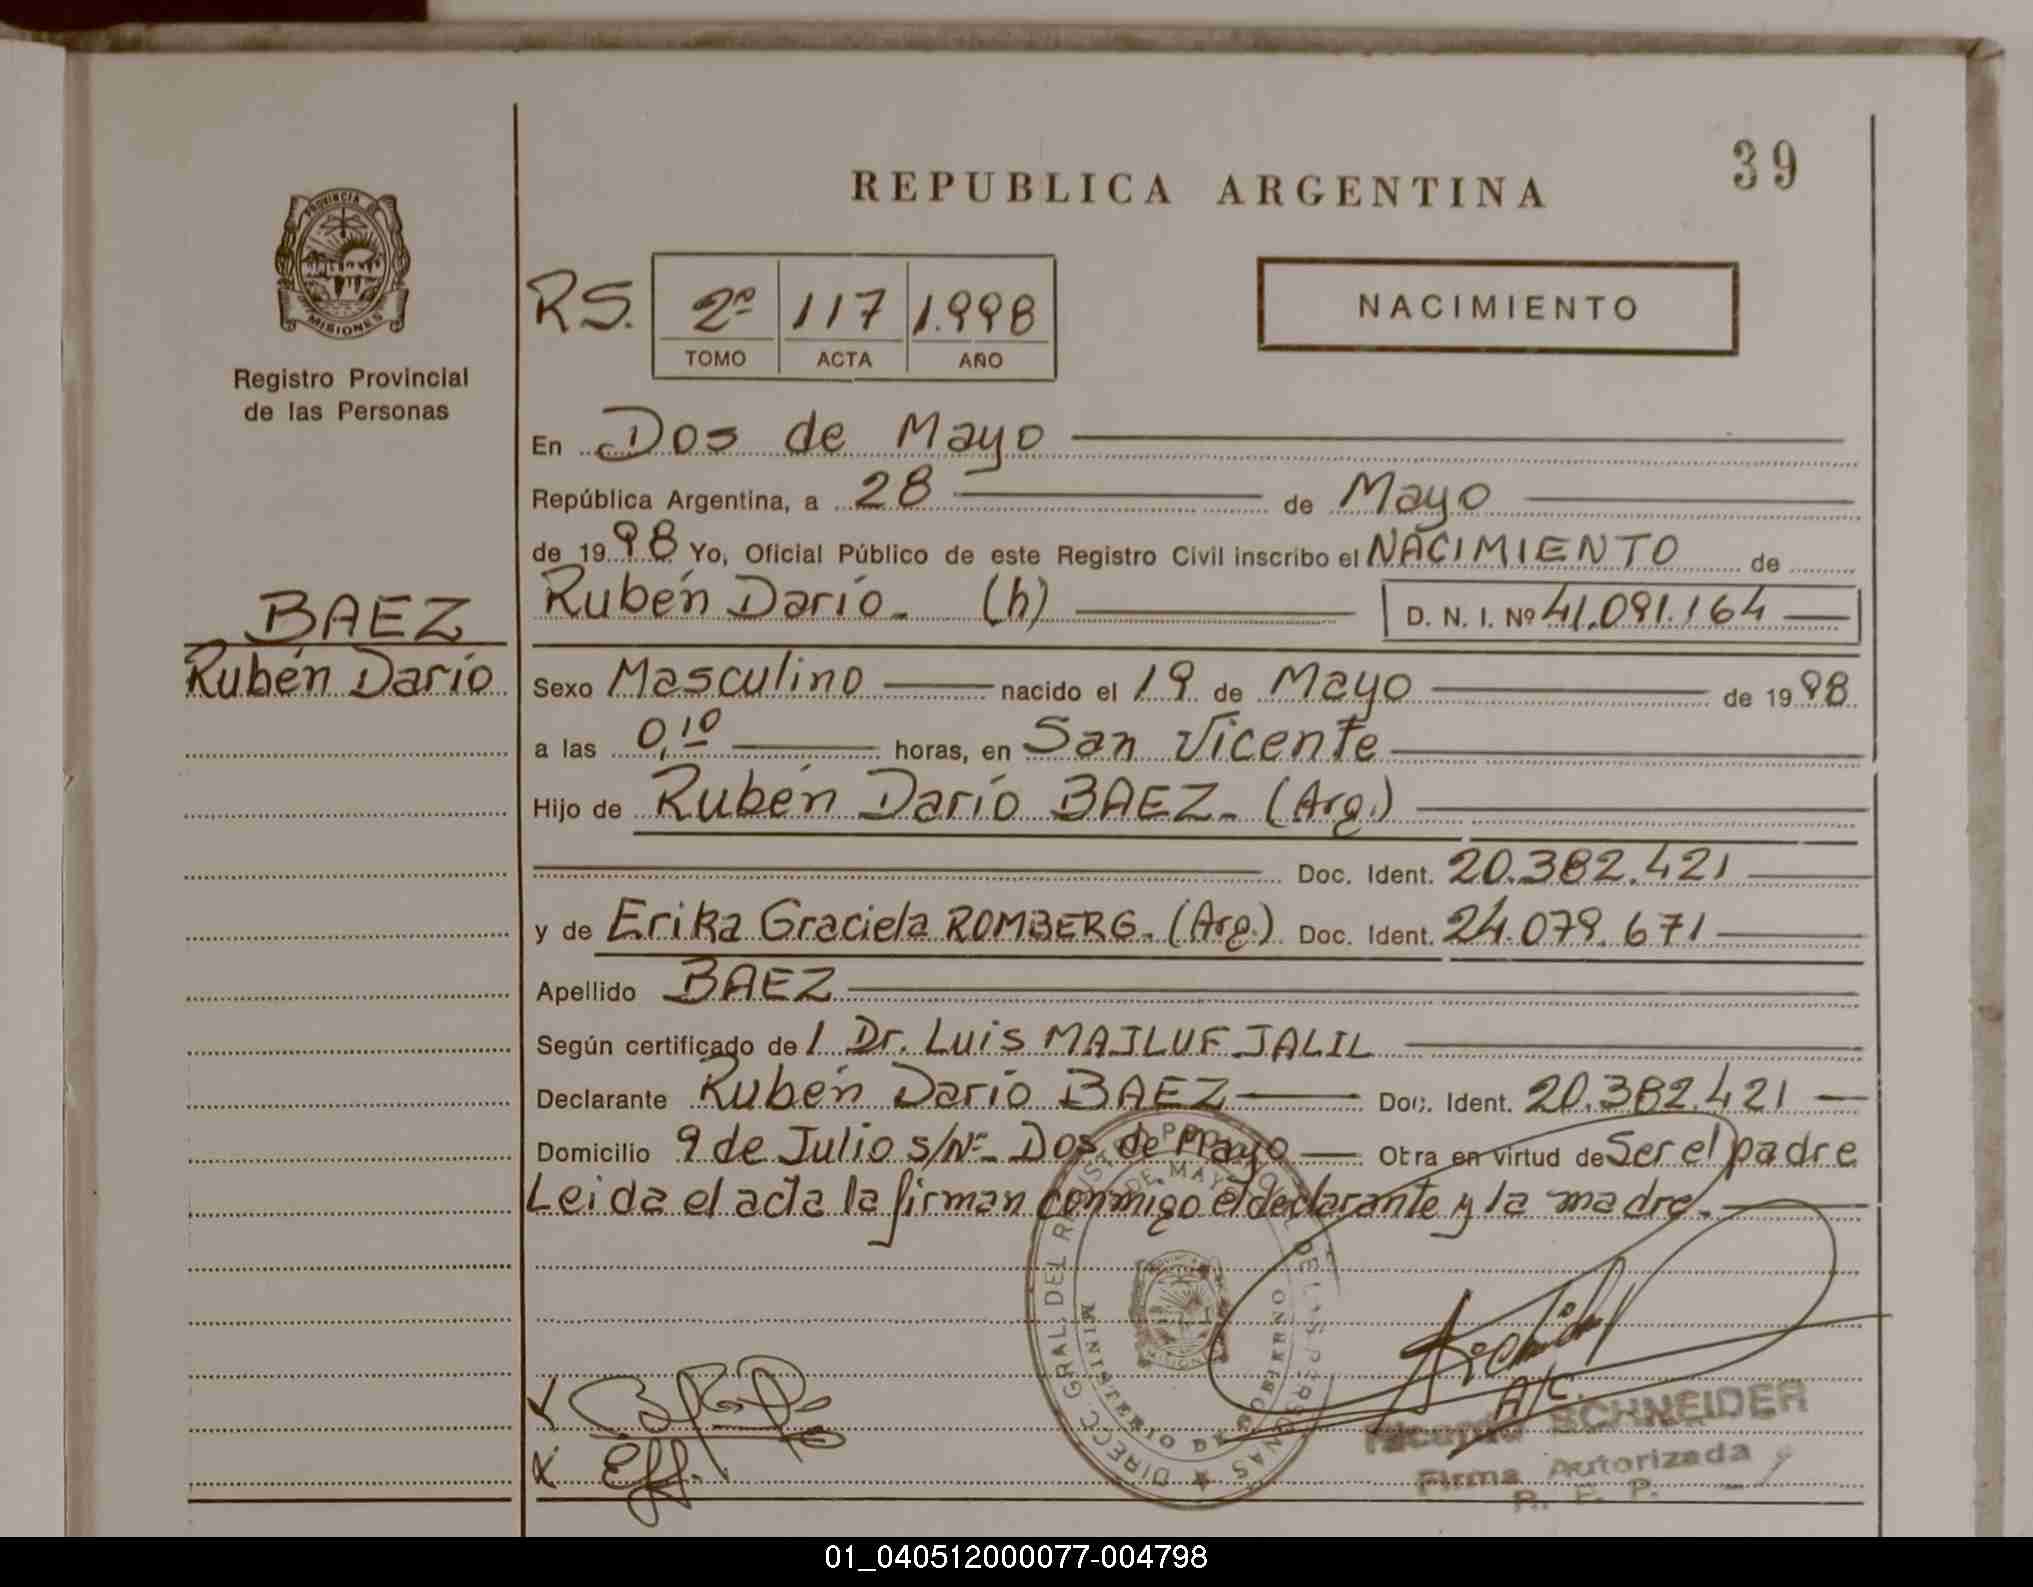 REPUBLICA ARGENTINA
39
PROVINCIA DE
MISIONES
Registro Provincial
de las Personas
RS.
2º 117 1.998
TOMO ACTA AÑO
NACIMIENTO
En Dos de Mayo
República Argentina, a 28 de Mayo
de 1998 Yo, Oficial Público de este Registro Civil inscribo el NACIMIENTO de
Rubén Darío. (h) D. N. I. Nº 41.091.164
BAEZ
Rubén Darío
Sexo Masculino nacido el 19 de Mayo de 1998
a las 0,10 horas, en San Vicente
Hijo de Rubén Darío BAEZ. (Arg.)
Doc. Ident. 20.382.421
y de Erika Graciela ROMBERG. (Arg.) Doc. Ident. 24.079.671
Apellido BAEZ
Según certificado de / Dr. Luis MAILUF JALIL
Declarante Rubén Darío BAEZ Doc. Ident. 20.382.421
Domicilio 9 de Julio s/Nº Dos de Mayo Obra en virtud de Ser el padre
Leida el acta la firman conmigo el declarante y la madre.
DIRECC. GRAL. DEL REGIST. PROVINCIAL DE LAS PERSONAS
DE MAYO
MINISTERIO DE GOBIERNO
A/C.
SCHNEIDER
Firma Autorizada
R. E. P.
01_040512000077-004798